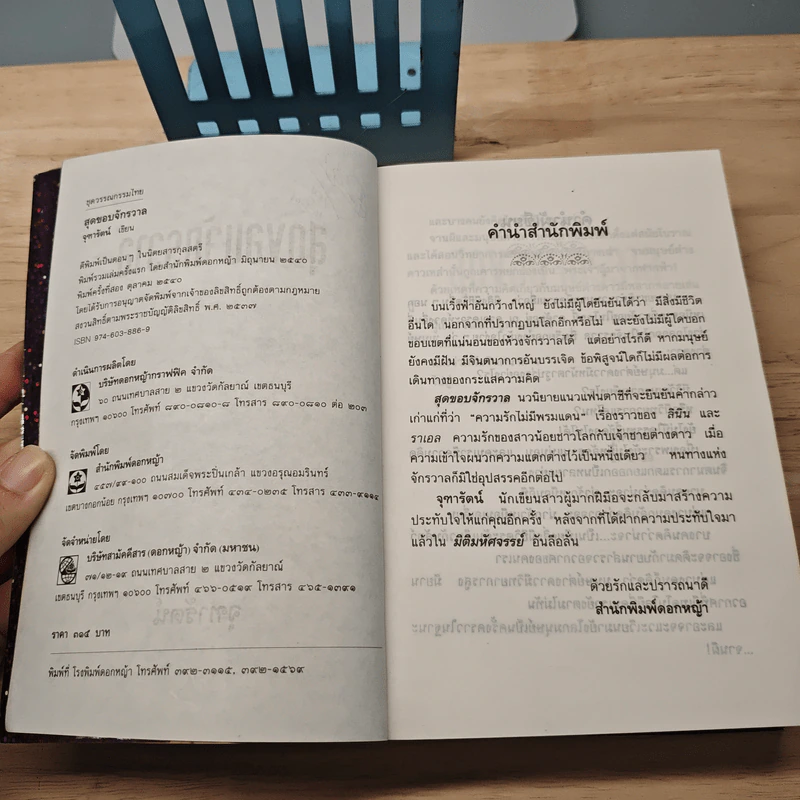 ชุดวรรณกรรมไทย
สุดขอบจักรวาล
จุฑารัตน์ เขียน
ตีพิมพ์เป็นตอนๆ ในนิตยสารกุลสตรี
พิมพ์รวมเล่มครั้งแรก โดยสำนักพิมพ์ดอกหญ้า มิถุนายน ๒๕๔๐
พิมพ์ครั้งที่สอง ตุลาคม ๒๕๔๐
โดยได้รับการอนุญาตจัดพิมพ์จากเจ้าของลิขสิทธิ์ถูกต้องตามกฎหมาย
สงวนสิทธิ์ตามพระราชบัญญัติลิขสิทธิ์ พ.ศ. ๒๕๓๗
ISBN 974-603-886-9
ดำเนินการผลิตโดย
บริษัทดอกหญ้ากราฟฟิค จำกัด
๖๐ ถนนเทศบาลสาย ๒ แขวงวัดกัลยาณ์ เขตธนบุรี
กรุงเทพฯ ๑๐๖๐๐ โทรศัพท์ ๘๙๐-๐๘๑๐-๘ โทรสาร ๘๙๐-๐๘๑๐ ต่อ ๒๐๓
จัดพิมพ์โดย
สำนักพิมพ์ดอกหญ้า
๔๕๗/๙๙-๑๐๐ ถนนสมเด็จพระปิ่นเกล้า แขวงอรุณอมรินทร์
เขตบางกอกน้อย กรุงเทพฯ ๑๐๗๐๐ โทรศัพท์ ๔๓๔-๐๒๓๕ โทรสาร ๔๓๓-๙๑๑๔
จัดจำหน่ายโดย
บริษัทสามัคคีสาร (ดอกหญ้า) จำกัด (มหาชน)
๗๑/๑๒-๑๙ ถนนเทศบาลสาย ๒ แขวงวัดกัลยาณ์
เขตธนบุรี กรุงเทพฯ ๑๐๖๐๐ โทรศัพท์ ๔๖๖-๐๕๑๙ โทรสาร ๔๖๕-๑๓๙๑
ราคา ๓๑๕ บาท
พิมพ์ที่ โรงพิมพ์ดอกหญ้า โทรศัพท์ ๓๙๒-๓๑๑๕, ๓๙๒-๑๕๖๙
คำนำสำนักพิมพ์
บนเวิ้งฟ้าอันกว้างใหญ่ ยังไม่มีผู้ใดยืนยันได้ว่า มีสิ่งมีชีวิต
อื่นใด นอกจากที่ปรากฏบนโลกอีกหรือไม่ และยังไม่มีผู้ใดบอก
ขอบเขตที่แน่นอนของห้วงจักรวาลได้ แต่อย่างไรก็ดี หากมนุษย์
ยังคงมีฝัน มีจินตนาการอันบรรเจิด ข้อพิสูจน์ใดก็ไม่มีผลต่อการ
เดินทางของกระแสความคิด
สุดขอบจักรวาล นวนิยายแนวแฟนตาซีที่จะยืนยันคำกล่าว
เก่าแก่ที่ว่า “ความรักไม่มีพรมแดน” เรื่องราวของ ลินิน และ
ราเอล ความรักของสาวน้อยชาวโลกกับเจ้าชายต่างดาว เมื่อ
ความเข้าใจผนวกความแตกต่างไว้เป็นหนึ่งเดียว หนทางแห่ง
จักรวาลก็มิใช่อุปสรรคอีกต่อไป
จุฑารัตน์ นักเขียนสาวผู้มากฝีมือจะกลับมาสร้างความ
ประทับใจให้แก่คุณอีกครั้ง หลังจากที่ได้ฝากความประทับใจมา
แล้วใน มิติมหัศจรรย์ อันลือลั่น
ด้วยรักและปรารถนาดี
สำนักพิมพ์ดอกหญ้า